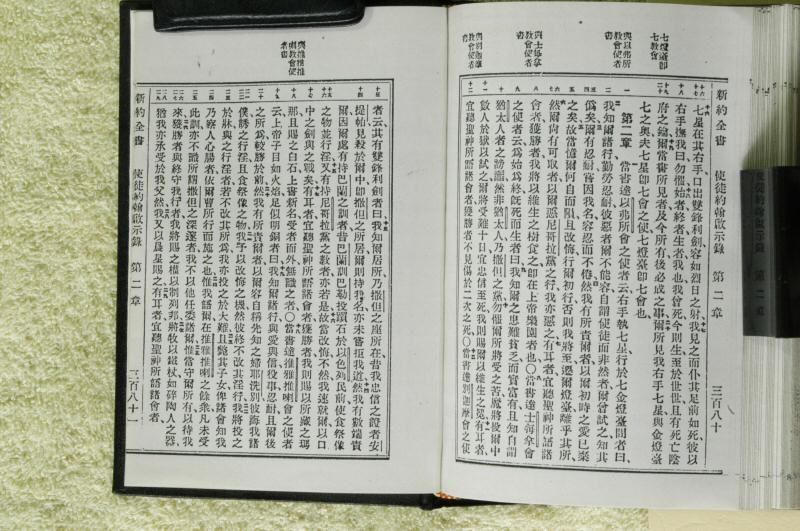 七燈臺即七教會
與以弗所教會使者書
與士每拿教會使者書
與別迦摩教會使者書
新約全書 使徒約翰啟示錄 第二章 三百八十
七星在其右手口出雙鋒利劍容如烈日之射我見之而仆其足前如死彼以
右手撫我曰勿懼始者終者生者我也我曾死今則生至於世世且有死亡陰
府之鑰爾當書所見者及今所有後必成之事爾所見我右手七星與金燈臺
七之奧夫七星即七會之使七燈臺即七會也
第二章 當書達以弗所會之使者云右手執七星行於七金燈臺間者曰
我知爾諸行勤勞忍耐彼惡者爾不能容自謂使徒而非然者爾嘗試之知其
僞矣爾有忍耐嘗因我名容忍而不倦然我有所責爾者以爾初時之愛已棄
之矣故當憶爾何自而隕且改悔行爾初行否則我將至遷爾燈臺離乎其所
然爾尚有可取者以爾惡尼哥拉黨之行我亦惡之有耳者宜聽聖神所語諸
會者獲勝者我將以維生之樹食之即在上帝樂園者也〇當書達士每拿會
之使者云爲始爲終旣死而生者曰我知爾之患難貧乏而實富有且知自謂
猶太人者之謗讟然非猶太人乃撒但之黨勿懼爾所將受之苦魔將投爾中
數人於獄以試之爾將受難十日宜忠信至死我則賜爾以維生之冕有耳者
宜聽聖神所語諸會者獲勝者不見傷於二次之死〇當書達別迦摩會之使
與推雅推喇教會使者書
者云其有雙鋒利劍者曰我知爾居所乃撒但之座所在昔我忠信之證者安
提帕見殺於爾中即撒但之所居爾則持我名亦未嘗拒我道然我有數端責
爾因爾處有持巴蘭之訓者昔巴蘭訓巴勒投躓石於以色列民前使食祭像
之物並行淫又有持尼哥拉黨之教者亦若是故當改悔不然我速就爾以口
中之劍與之戰矣有耳者宜聽聖神所語諸會者獲勝者我則賜以所藏之瑪
那且賜之白石上書新名受者而外無識之者〇當書達推雅推喇會之使者
云上帝子目如火焰足似明銅者曰我知爾諸行與愛與信役事忍耐且爾後
之所爲較勝於前然我有所責爾者以爾容自稱先知之婦耶洗別彼誨我諸
僕誘之行淫且食祭像之物我予以改悔之機然彼終不改其淫行我將投之
於牀與之行淫者若不改其所爲我亦投之於大難且斃其子女俾諸會知我
乃察人心腸者依爾曹所行而爲之也惟我語爾在推雅推喇之餘衆凡未受
此訓亦不識所謂撒但之深邃者我不以他任委諸爾惟當守爾所有以待我
來獲勝者與終守我行者我將賜之權以制列邦將牧以鐵杖如碎陶人之器
猶我亦承受於我父然我又以晨星賜之有耳者宜聽聖神所語諸會者
新約全書 使徒約翰啟示錄 第二章 三百八十一